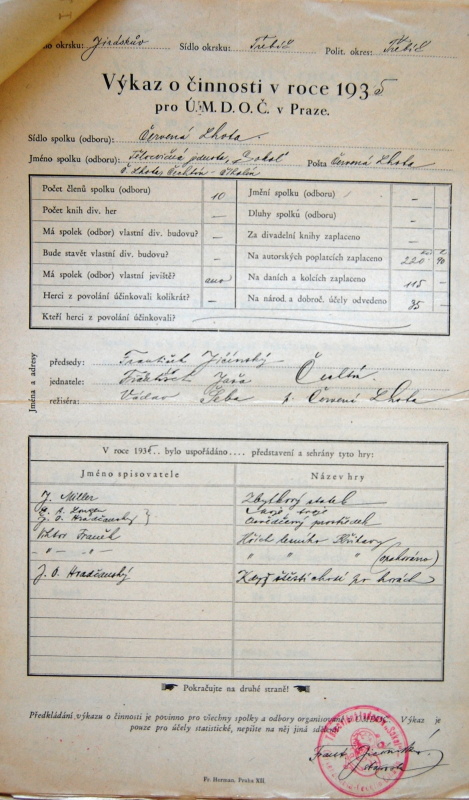 okrsku: Jiráskův Sídlo okrsku: Třebíč Polit. okres: Třebíč
Výkaz o činnosti v roce 1935
pro Ú.M.D.O.Č. v Praze.
Sídlo spolku (odboru): Červená Lhota.
Jméno spolku (odboru): Tělocvičná jednota „Sokol" Pošta Červená Lhota
Č. Lhota
Počet členů spolku (odboru) 10 Jmění spolku (odboru) —
Počet knih div. her — Dluhy spolků (odboru) —
Má spolek (odbor) vlastní div. budovu? — Za divadelní knihy zaplaceno —
Bude stavět vlastní div. budovu? — Na autorských poplatcích zaplaceno 220 90
Má spolek (odbor) vlastní jeviště? ano Na daních a kolcích zaplaceno 115 —
Herci z povolání účinkovali kolikrát? — Na národ. a dobroč. účely odvedeno 35 —
Kteří herci z povolání účinkovali?
Jména a adresy
předsedy: František Jičínský
jednatele: František Jaša
režiséra: Václav Šeba z Červené Lhoty
V roce 1935.. bylo uspořádáno.... představení a sehrány tyto hry:
Jméno spisovatele Název hry
J. Miller Zbytkový statek
J. O. Hradčanský } Osvědčený prostředek
Viktor Braněk Hřích
— " — " — " " " (opakováno)
J. O. Hradčanský Když štěstí chodí po horách
Pokračujte na druhé straně!
Předkládání výkazu o činnosti je povinno pro všechny spolky a odbory organisované v ÚMDOČ. Výkaz je
pouze pro účely statistické, nepište na něj jiná sdělení.
Frant. Jičínský
starosta
Fr. Herman, Praha XII.